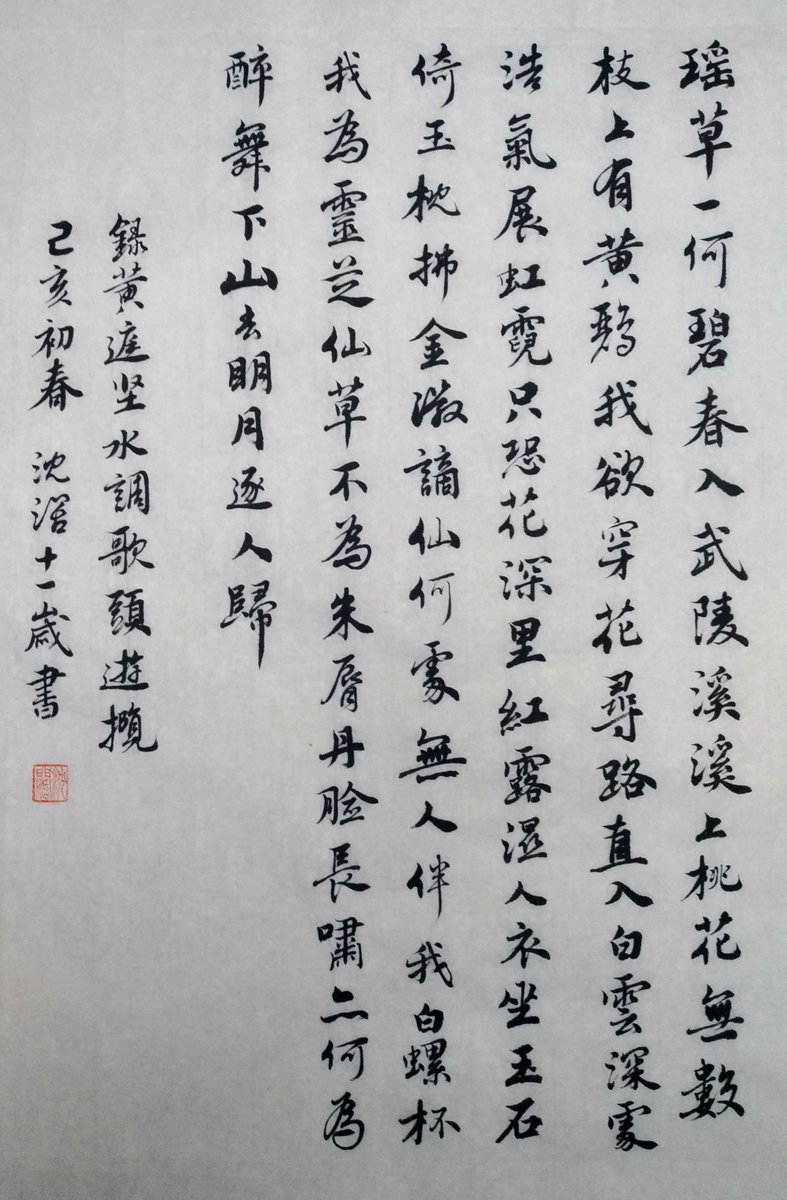 瑶草一何碧春入武陵溪溪上桃花無數
枝上有黄鸝我欲穿花尋路直入白雲深處
浩氣展虹霓只恐花深里紅露濕人衣坐玉石
倚玉枕拂金徽謫仙何處無人伴我白螺杯
我為靈芝仙草不為朱脣丹臉長嘯亦何為
醉舞下山去明月逐人歸
録黄庭坚水調歌頭遊攬
己亥初春 沈 十一歲書